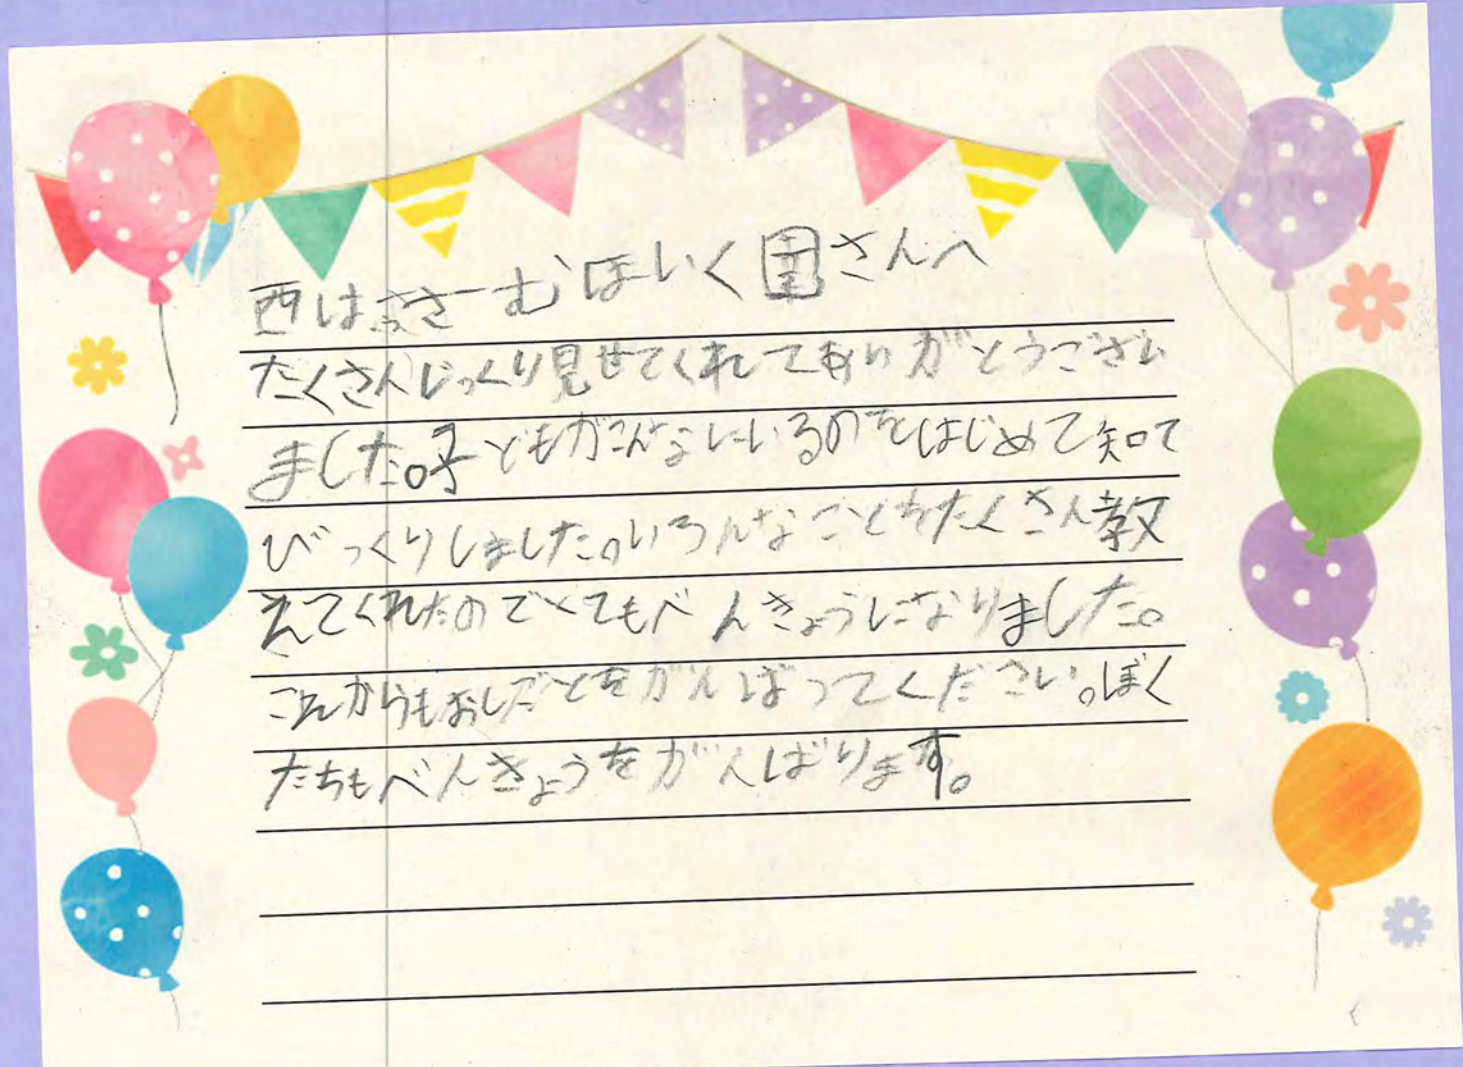 西はっさーむほいく園さんへ
たくさんじっくり見せてくれてありがとうござい
ました。子どもがこんなにいるのをはじめて知て
びっくりしました。いろんなことをたくさん教
えてくれたのでとてもべんきょうになりました。
これからもおしごとをがんばってください。ぼく
たちもべんきょうをがんばります。